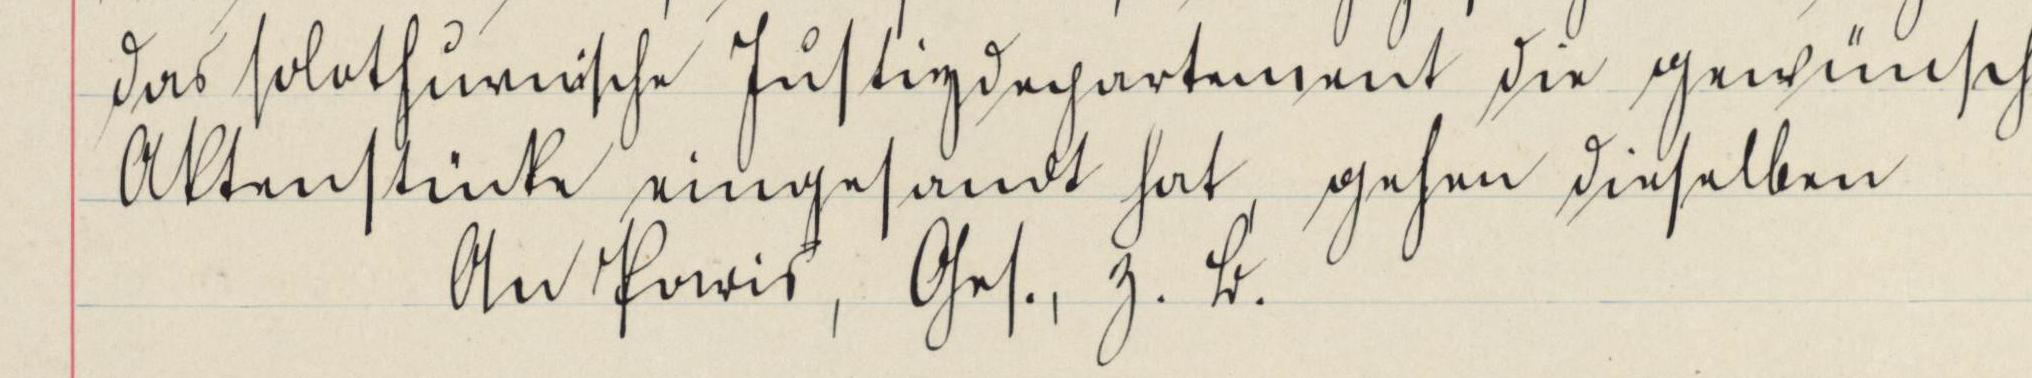 das solothurnische Justizdepartement die gewünsch
Aktenstücke eingesandt hat, gehen dieselben
An Paris, Ges., z. B.